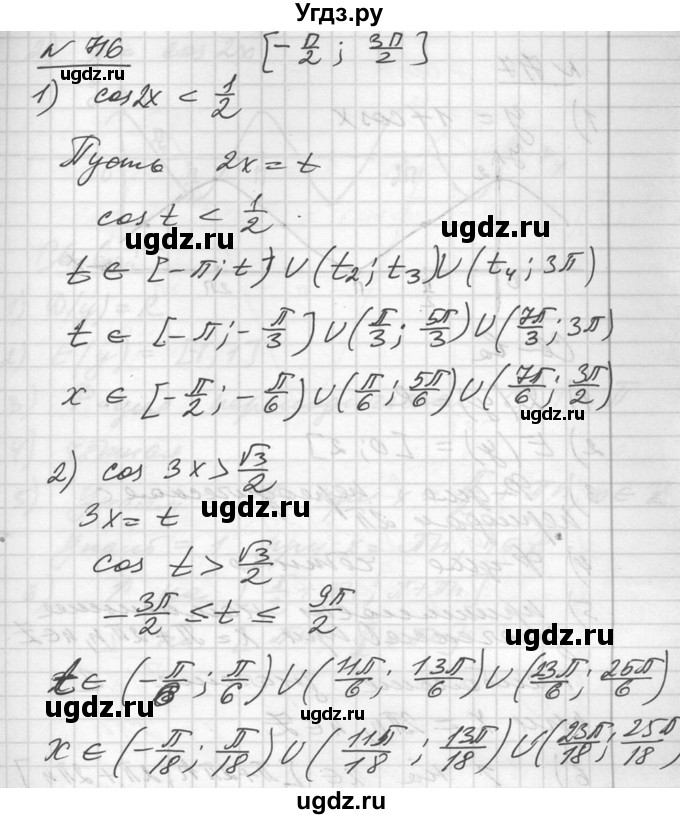 Угдз.ру
№ 716 [-π/2; 3π/2]
ugdz.ru
1) cos2x < 1/2
ugdz.ru
Пусть 2x = t
cos t < 1/2
ugdz.ru ugdz.ru
t ∈ [-π; t] ∪ (t₂; t₃) ∪ (t₄; 3π)
t ∈ [-π; -π/3] ∪ (π/3; 5π/3) ∪ (7π/3; 3π)
x ∈ [-π/2; -π/6) ∪ (π/6; 5π/6) ∪ (7π/6; 3π/2)
ugdz.ru
2) cos 3x > √3/2
ugdz.ru
3x = t
cos t > √3/2
ugdz.ru
-3π/2 ≤ t ≤ 9π/2
ugdz.ru
t ∈ (-π/6; π/6) ∪ (11π/6; 13π/6) ∪ (23π/6; 25π/6)
ugdz.ru
x ∈ (-π/18; π/18) ∪ (11π/18; 13π/18) ∪ (23π/18; 25π/18)
ugdz.ru
ugdz.ru